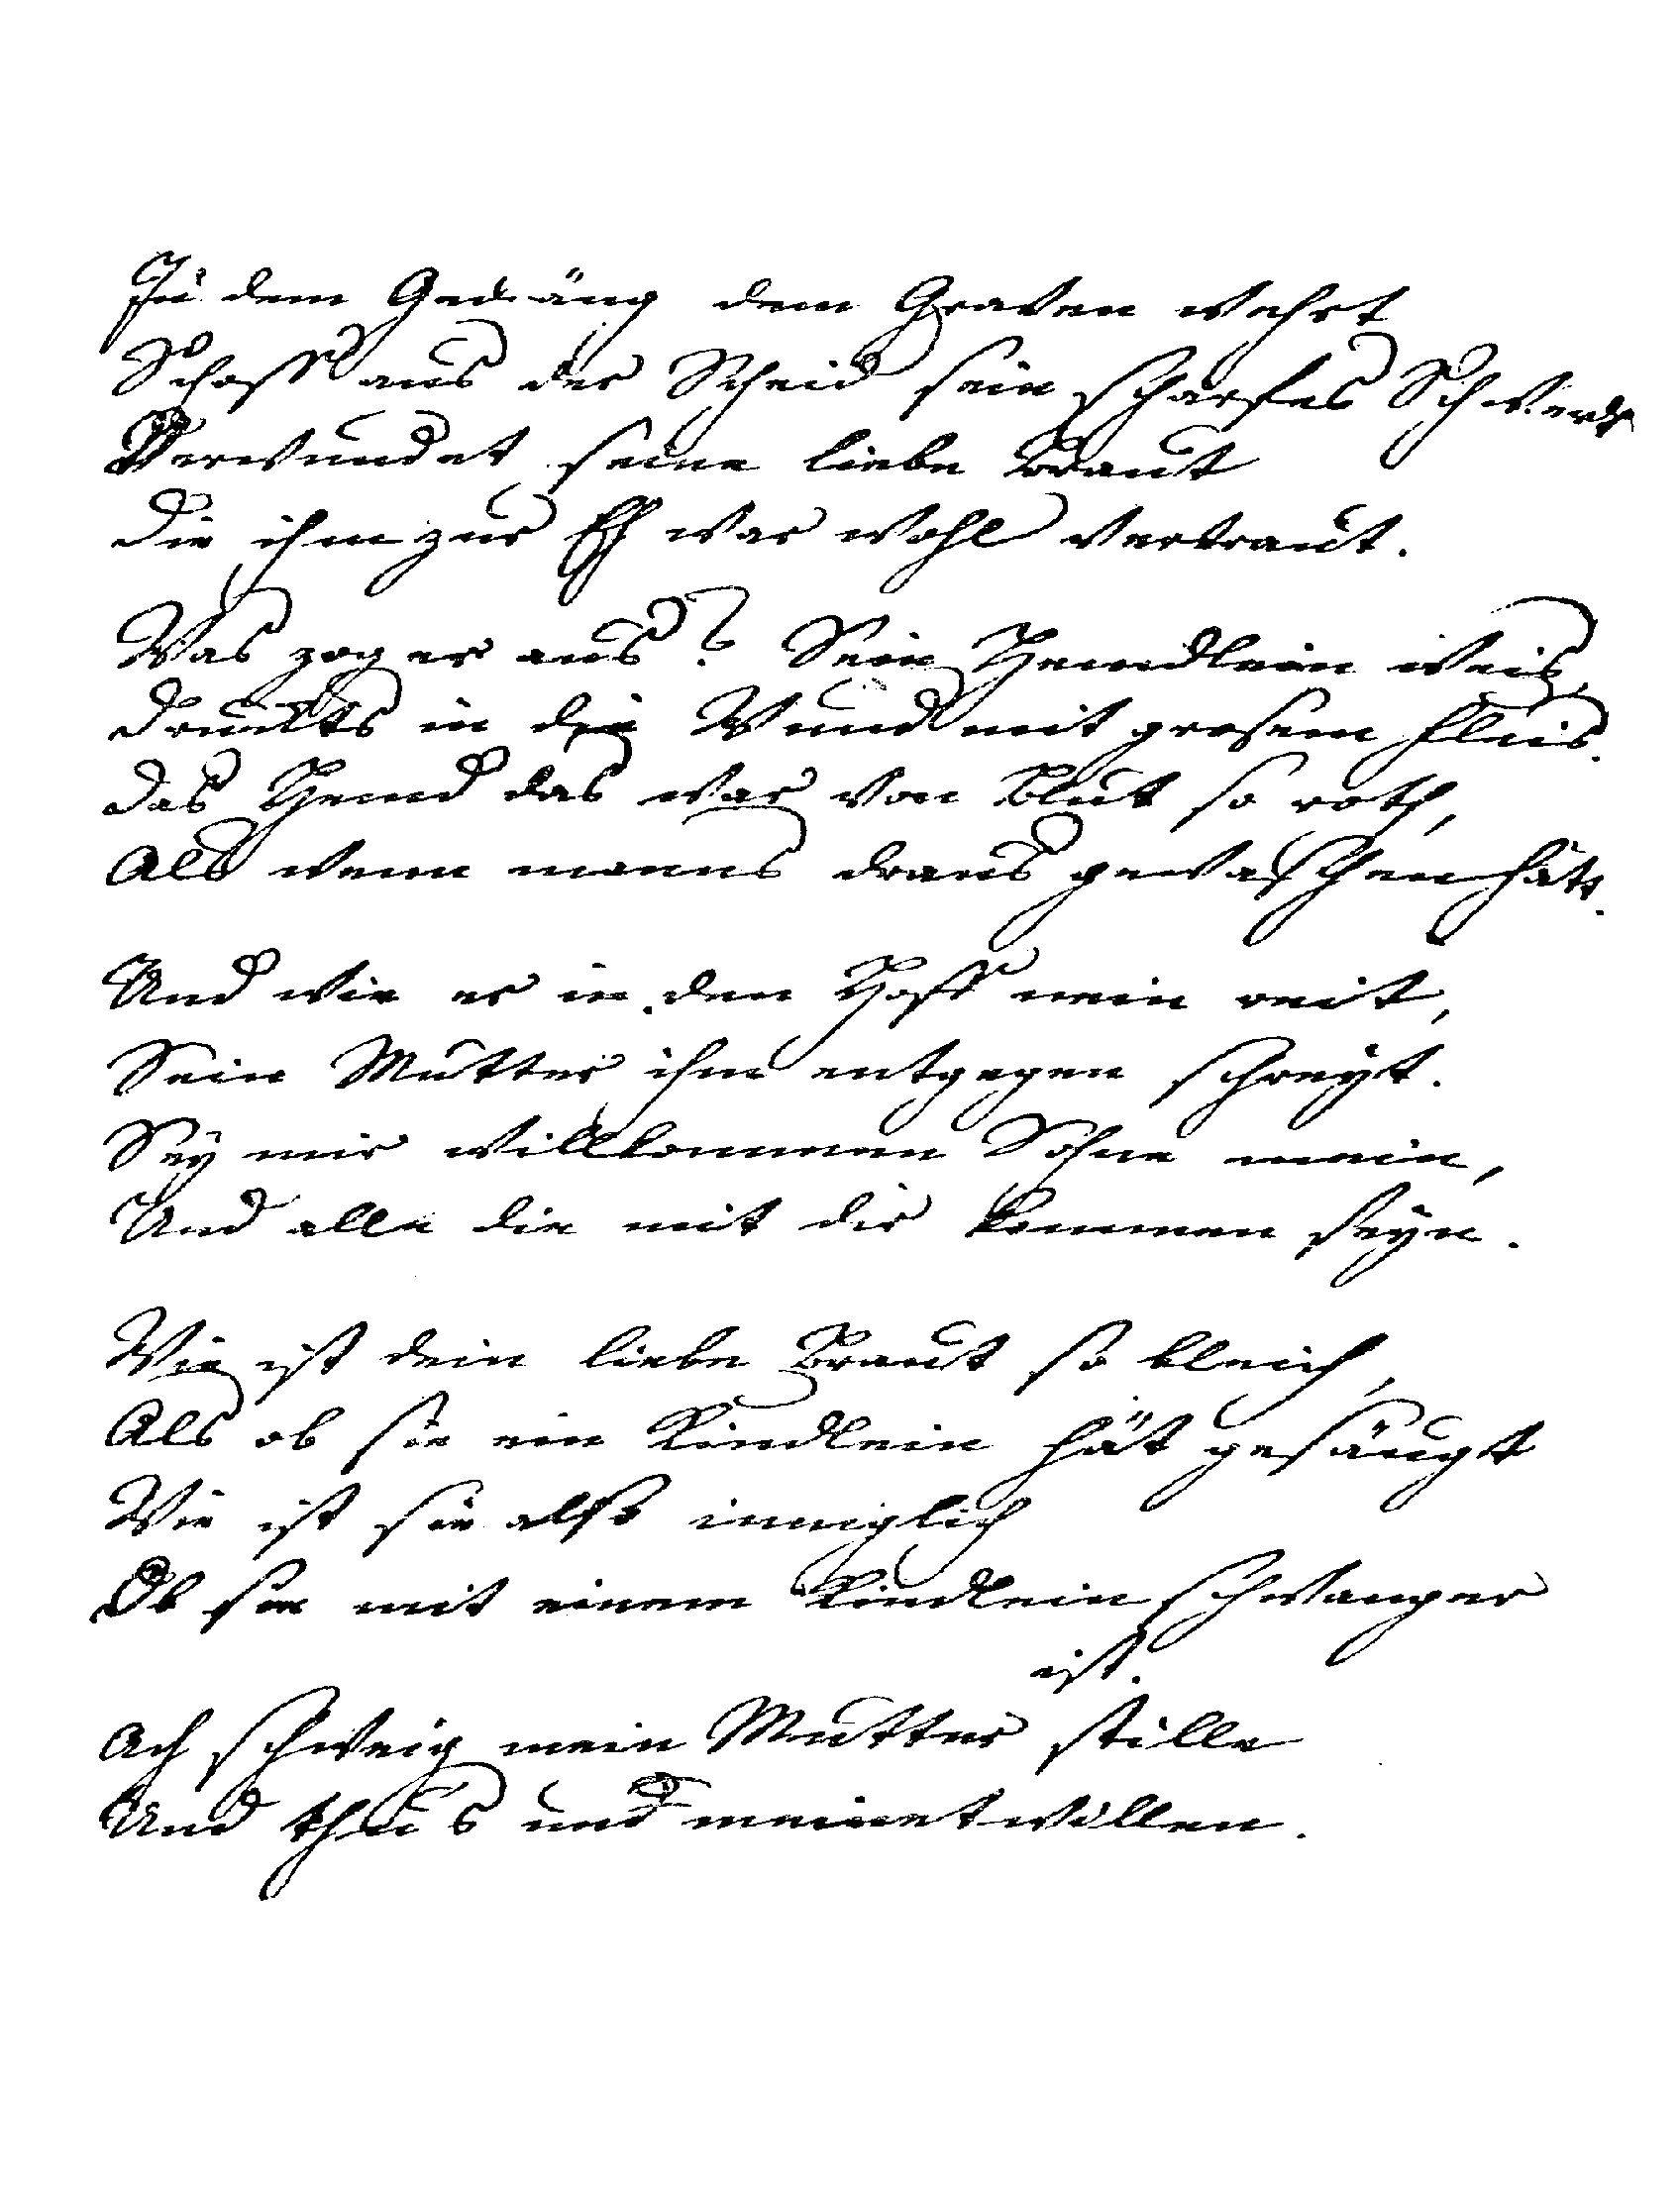 In dem Gedräng dem Graven wehrt
Schoss aus der Scheid sein scharfes Schwerdt
Verwundet seine liebe Braut
Die ihm zur Eh war wohl vertraut.
Was zog er aus? Sein Hemdlein weis,
Druckts in die Wund mit grosem Fleis.
Das Hemd das war von Blut so roth,
Als wenn manns draus gewaschen hätt.
Und wie er in den Hoff nein reit,
Sein Mutter ihm entgegen schreyt.
Sey mir willkommen Sohne mein,
Und alle die mit dir kommen seyn.
Wie ist dein liebe Braut so bleich,
Als ob sie ein Kindlein hät gesäugt
Wie ist sie also inniglich
Ob sie mit einem Kindlein schwanger
ist.
Ach schweig mein Mutter stille
Und thus und meinetwillen.